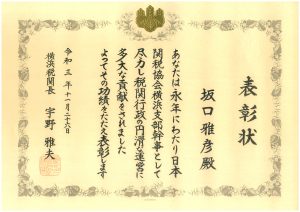 表彰状
坂口雅彦殿
あなたは永年にわたり日本
関税協会横浜支部幹事として
尽力し税関行政の円滑な運営に
多大な貢献をされました
よってその功績をたたえ表彰します
令和三年十一月二十六日
横浜税関長 宇野雅夫